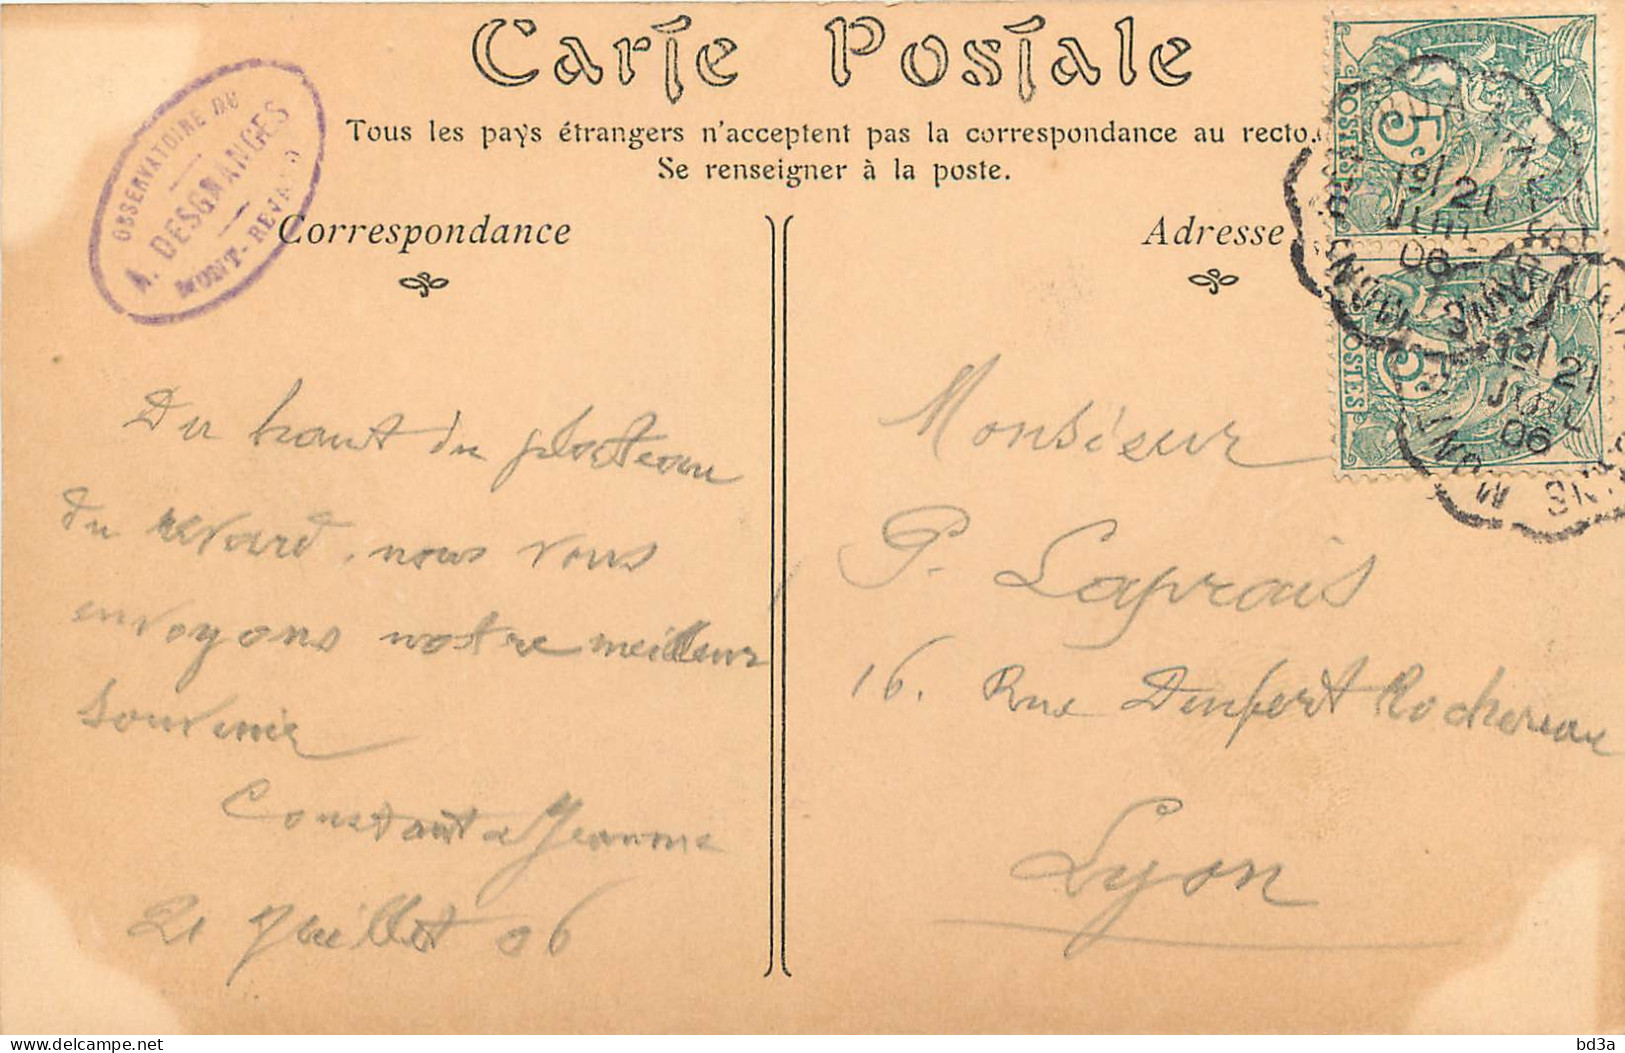 Carte Postale
Tous les pays étrangers n'acceptent pas la correspondance au recto.
Se renseigner à la poste.
OBSERVATOIRE DU
A. DESGRANGES
MONT-REVARD
Correspondance
Du haut du plateau
du revard, nous vous
envoyons notre meilleur
souvenir
Constant & Jeanne
21 Juillet 06
Adresse
Monsieur
P. Laprais
16. Rue Denfert Rochereau
Lyon
5c
POSTES
21
JUIL
06
5c
POSTES
21
JUIL
06
bd3a